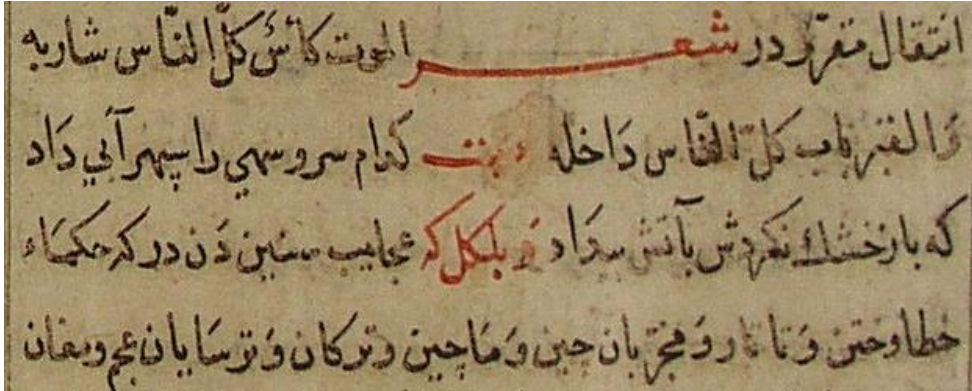 انتقال متفرّد در شعر الموت كأس كلّ النّاس شاربه
وَالقبر باب كلّ النّاس دَاخله بيت كدام سرو سهي را سپهر آبي دَاد
كه باز خشك نكردش بآتش بيداد و بلكل كه عجايب سنين دَن در كه حكمَاء
خطا وختن وَتاتار وَ مجرّبان چين وَمَاچين وتركان وَترسَايان عجم ومغان